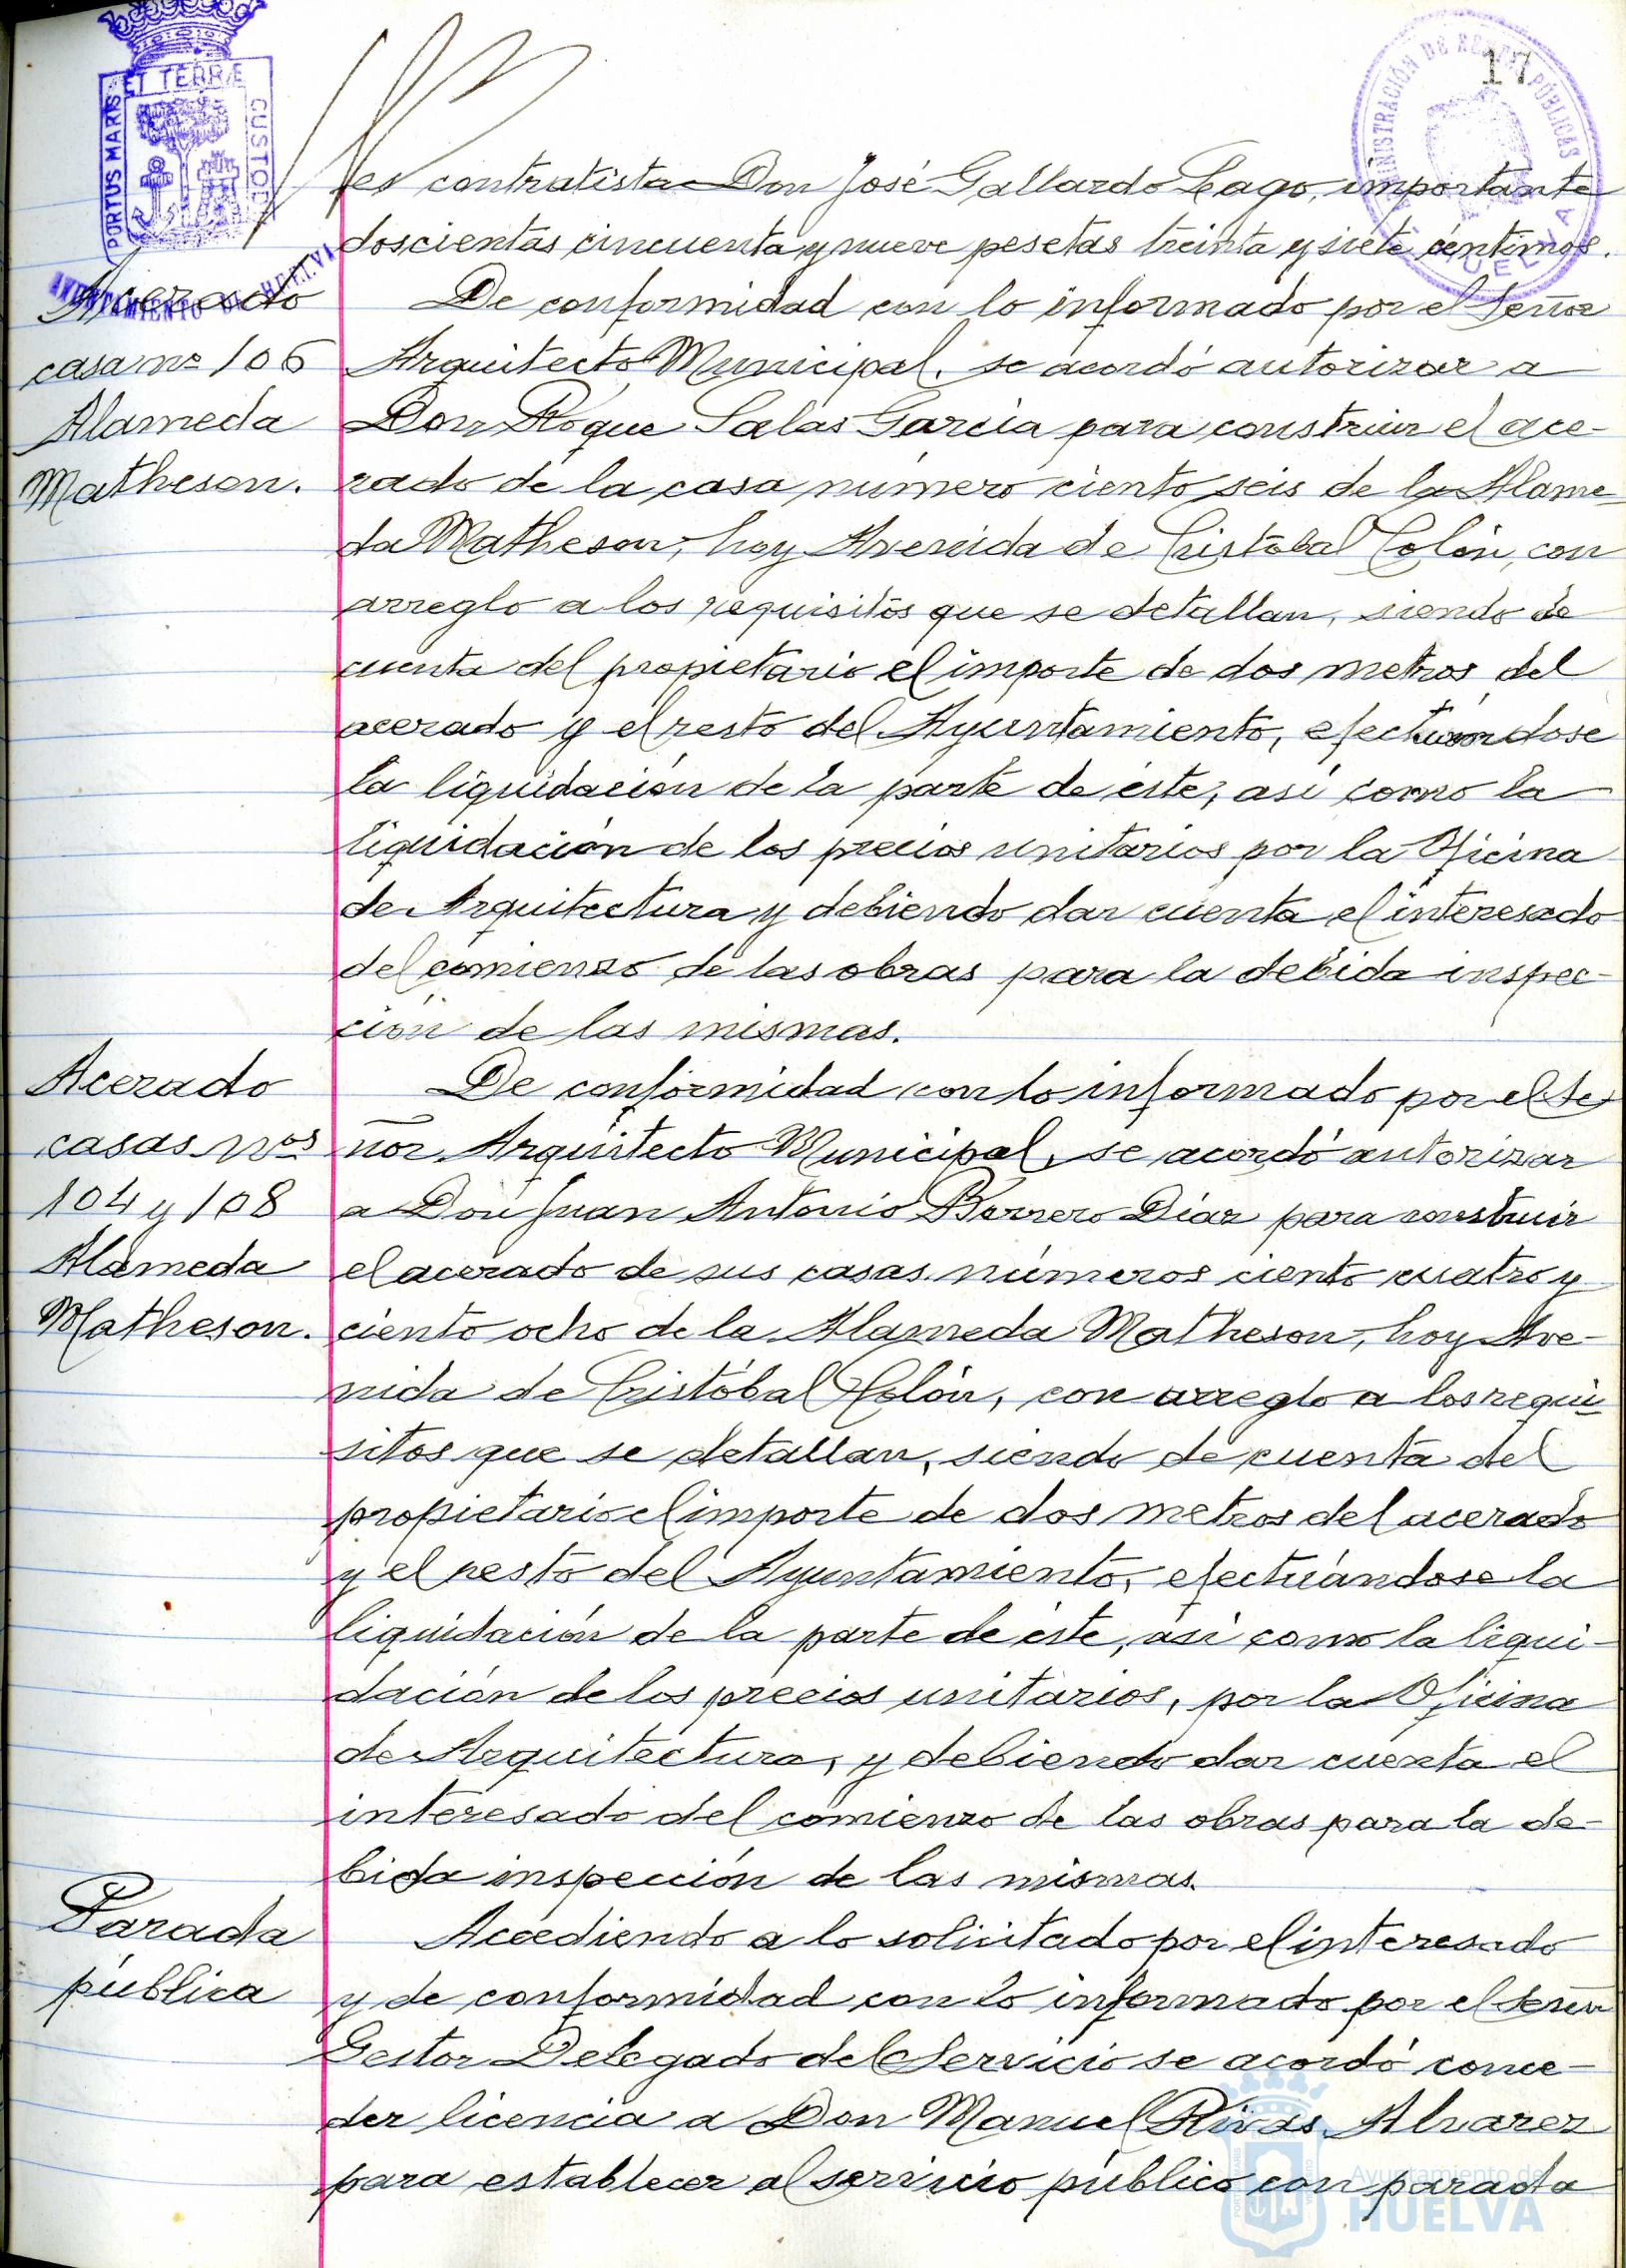 17
PORTUS MARIS ET TERRÆ CUSTODIA
AYUNTAMIENTO DE HUELVA
ADMINISTRACIÓN DE RENTAS PÚBLICAS
HUELVA
contratista Don José Gallardo Lago, importante
doscientas cincuenta y nueve pesetas treinta y siete céntimos.
Acerado
casa nº 106
Alameda
Matheson.
De conformidad con lo informado por el Señor
Arquitecto Municipal, se acordó autorizar a
Don Roque Salas García para construir el ace-
rado de la casa número ciento seis de la Alame-
da Matheson, hoy Avenida de Cristóbal Colón, con
arreglo a los requisitos que se detallan, siendo de
cuenta del propietario el importe de dos metros del
acerado y el resto del Ayuntamiento, efectuándose
la liquidación de la parte de éste, así como la
liquidación de los precios unitarios por la Oficina
de Arquitectura y debiendo dar cuenta el interesado
del comienzo de las obras para la debida inspec-
ción de las mismas.
Acerado
casas nos
104 y 108
Alameda
Matheson.
De conformidad con lo informado por el Se-
ñor Arquitecto Municipal, se acordó autorizar
a Don Juan Antonio Borrero Díaz para construir
el acerado de sus casas números ciento cuatro y
ciento ocho de la Alameda Matheson, hoy Ave-
nida de Cristóbal Colón, con arreglo a los requi-
sitos que se detallan, siendo de cuenta del
propietario el importe de dos metros del acerado
y el resto del Ayuntamiento, efectuándose la
liquidación de la parte de éste, así como la liqui-
dación de los precios unitarios, por la Oficina
de Arquitectura, y debiendo dar cuenta el
interesado del comienzo de las obras para la de-
bida inspección de las mismas.
Parada
pública
Accediendo a lo solicitado por el interesado
y de conformidad con lo informado por el Señor
Gestor Delegado del Servicio se acordó conce-
der licencia a Don Manuel Rivas Alvarez
para establecer al servicio público con parada
Ayuntamiento de
HUELVA